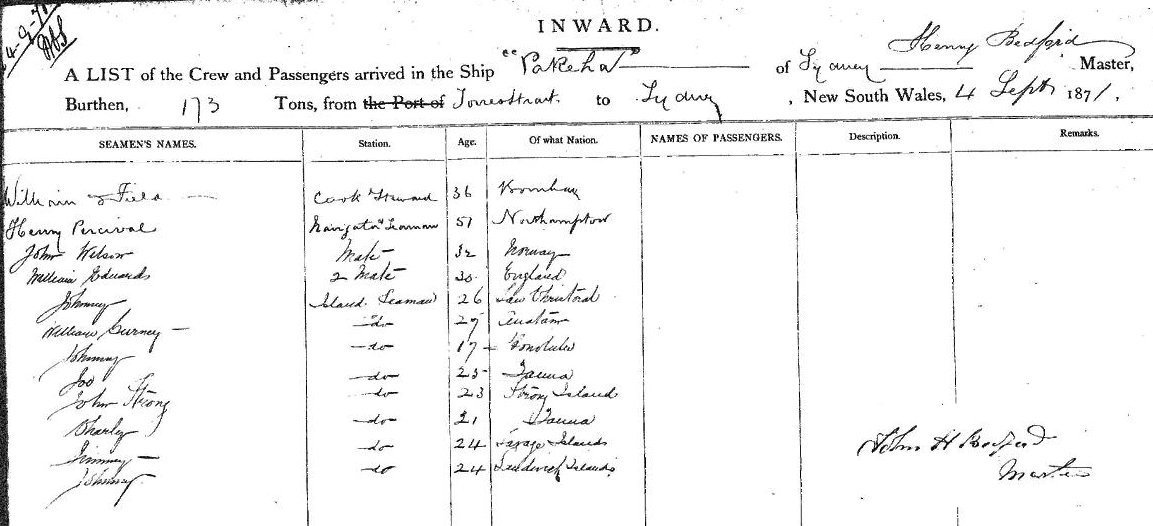 4-9-71
INWARD.
Henry Bedford
A LIST of the Crew and Passengers arrived in the Ship "Pakeha" of Sydney Master,
Burthen, 173 Tons, from the Port of Torres Strait to Sydney, New South Wales, 4 Sept 1871.
SEAMEN'S NAMES. Station. Age. Of what Nation. NAMES OF PASSENGERS. Description. Remarks.
William Field Cook & Steward 36 Bombay
Henry Percival Navigator & Seaman 51 Northampton
John Wilson Mate 32 Norway
William Eduards 2 Mate 30 England
Johnney Island Seaman 26 San Christoval
William Gurney do 27
Johnney do 17 Honolulu
Joo do 25 Tanna
John Strong do 23 Strong Island
Charley do 21 Tanna
Jimmey do 24 Savage Islands
Johnney do 24 Sandwich Islands
John H Bedford
Master